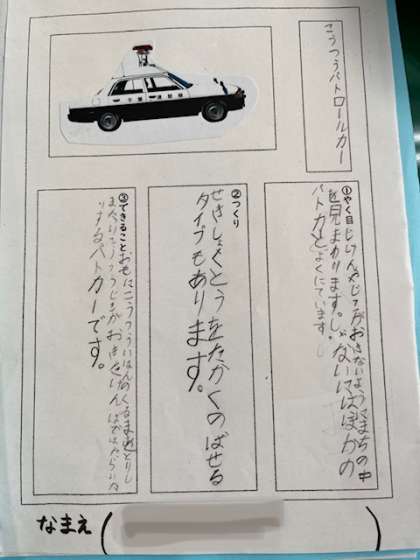 こうつうパトロールカー
千葉県警察
①やく目
じけんやじこがおきないようにまちの中
を見まわります。し
ないにはほかの
パトカーとよくにています。
②つくり
せきしょくとうをたかくのばせる
タイプもあります。
③できること
おもにこうつういはんのくるまをとりし
まったり
こうつうじこがおきたとき
するパトカーです。
なまえ